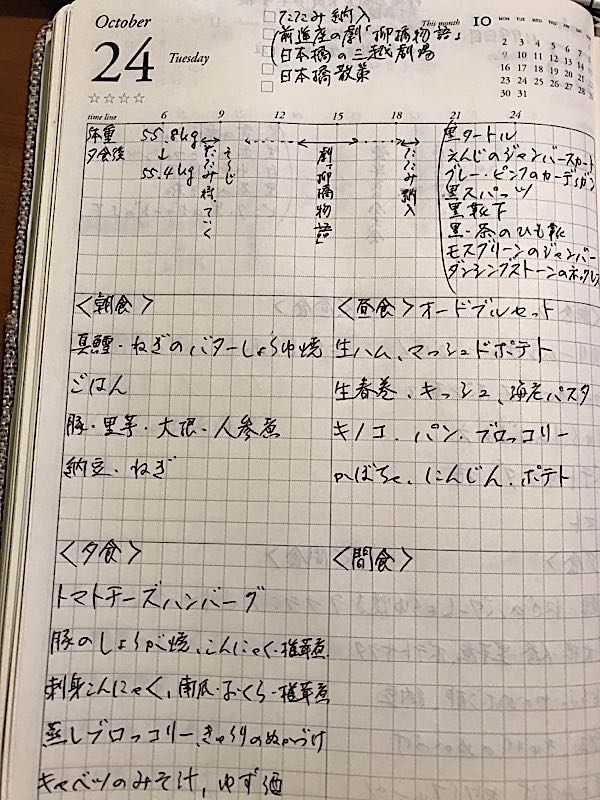 October
24 Tuesday
☆☆☆☆
□ たたみ納入
□ (前進座の劇「柳橋物語」
□ 日本橋の三越劇場
□ 日本橋散策
This month 10
MON TUE WED THU FRI
2 3 4 5 6 7
9 10 11 12 13 14
16 17 18 19 20 21
23 24 25 26 27 28
30 31
time line 6 9 12 15 18 21 24
体重 55.8kg
夕食後 ↓
55.4kg
たたみ持っていく
そうじ
劇「柳橋物語」
たたみ納入
黒タートル
えんじのジャンパースカート
グレー・ピンクのカーディガン
黒スパッツ
黒靴下
黒・茶のひも靴
モスグリーンのジャンパー
ダンシングストーンのネックレス
<朝食>
真鱈・ねぎのバターしょうゆ焼
ごはん
豚・里芋・大根・人参煮
納豆・ねぎ
<昼食> オードブルセット
生ハム、マッシュドポテト
生春巻、キッシュ、海老パスタ
キノコ、パン・ブロッコリー
かぼちゃ、にんじん、ポテト
<夕食>
トマトチーズハンバーグ
豚のしょうが焼、こんにゃく・椎茸煮
刺身こんにゃく、南瓜・おくら・椎茸煮
蒸しブロッコリー、きゅうりのぬかづけ
キャベツのみそ汁、ゆず酒
<間食>